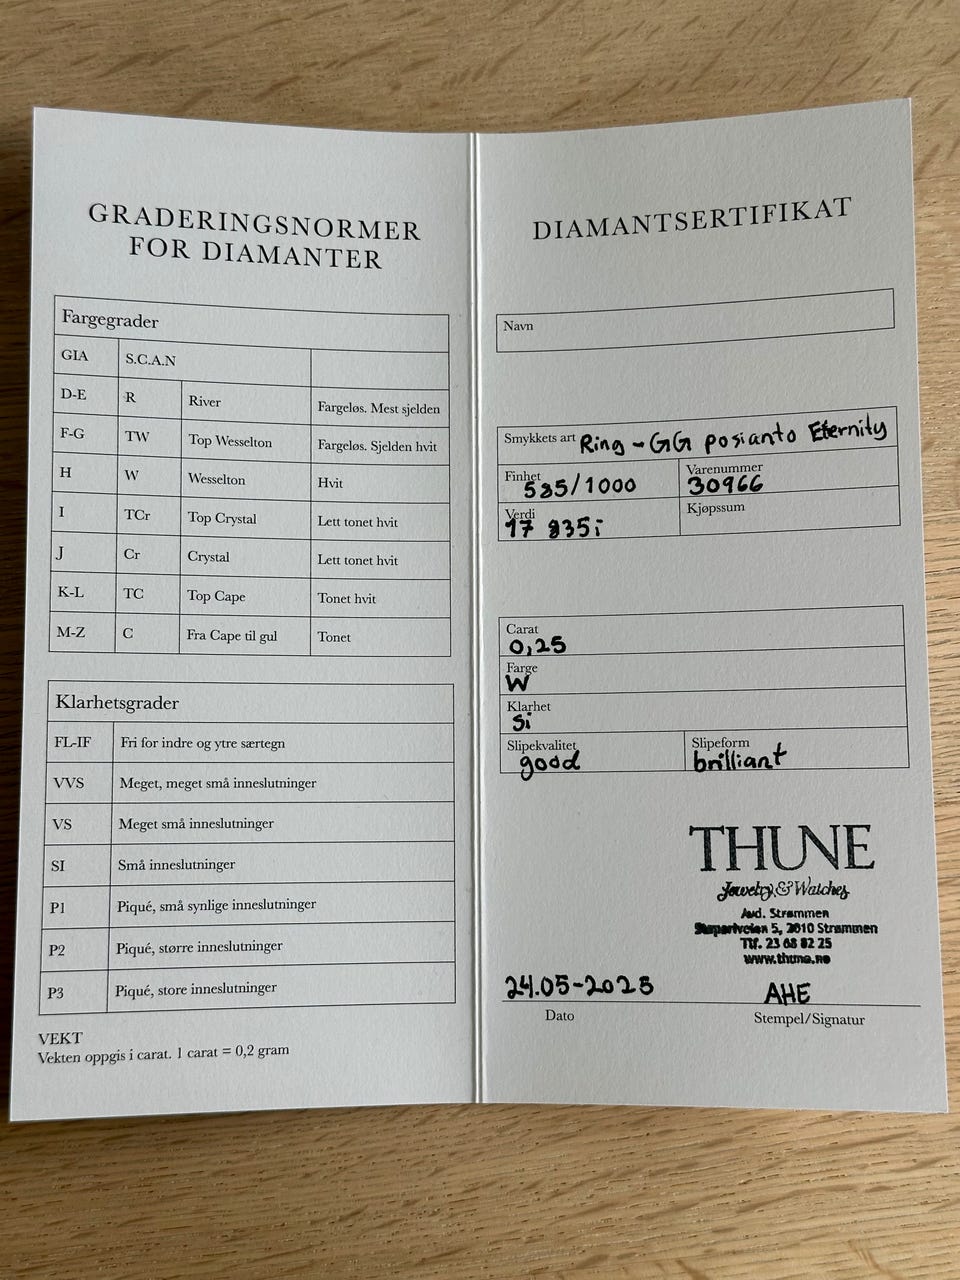 GRADERINGSNORMER
FOR DIAMANTER
Fargegrader
GIA S.C.A.N
D-E R River Fargeløs. Mest sjelden
F-G TW Top Wesselton Fargeløs. Sjelden hvit
H W Wesselton Hvit
I TCr Top Crystal Lett tonet hvit
J Cr Crystal Lett tonet hvit
K-L TC Top Cape Tonet hvit
M-Z C Fra Cape til gul Tonet
Klarhetsgrader
FL-IF Fri for indre og ytre særtegn
VVS Meget, meget små inneslutninger
VS Meget små inneslutninger
SI Små inneslutninger
P1 Piqué, små synlige inneslutninger
P2 Piqué, større inneslutninger
P3 Piqué, store inneslutninger
VEKT
Vekten oppgis i carat. 1 carat = 0,2 gram
DIAMANTSERTIFIKAT
Navn
Smykkets art Ring - GG posianto Eternity
Finhet 585/1000 Varenummer 30966
Verdi 17 835; Kjøpssum
Carat
0,25
Farge
W
Klarhet
Si
Slipekvalitet Slipeform
good brilliant
THUNE
Jewelry & Watches
Avd. Strømmen
5, 2010 Strømmen
Tlf. 23 68 82 25
www.thune.no
24.05-2023 AHE
Dato Stempel/Signatur